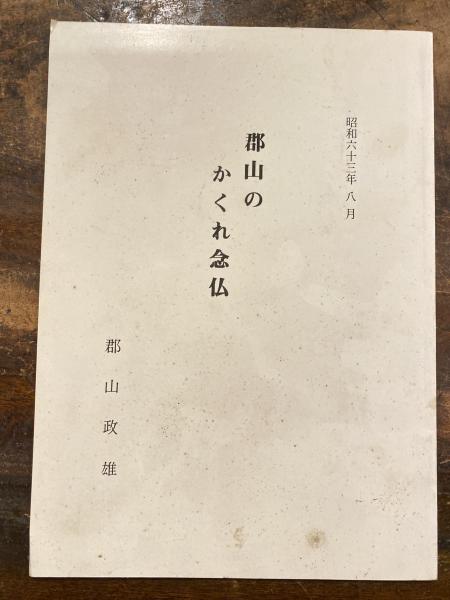 昭和六十三年八月
郡山の
かくれ念仏
郡山政雄